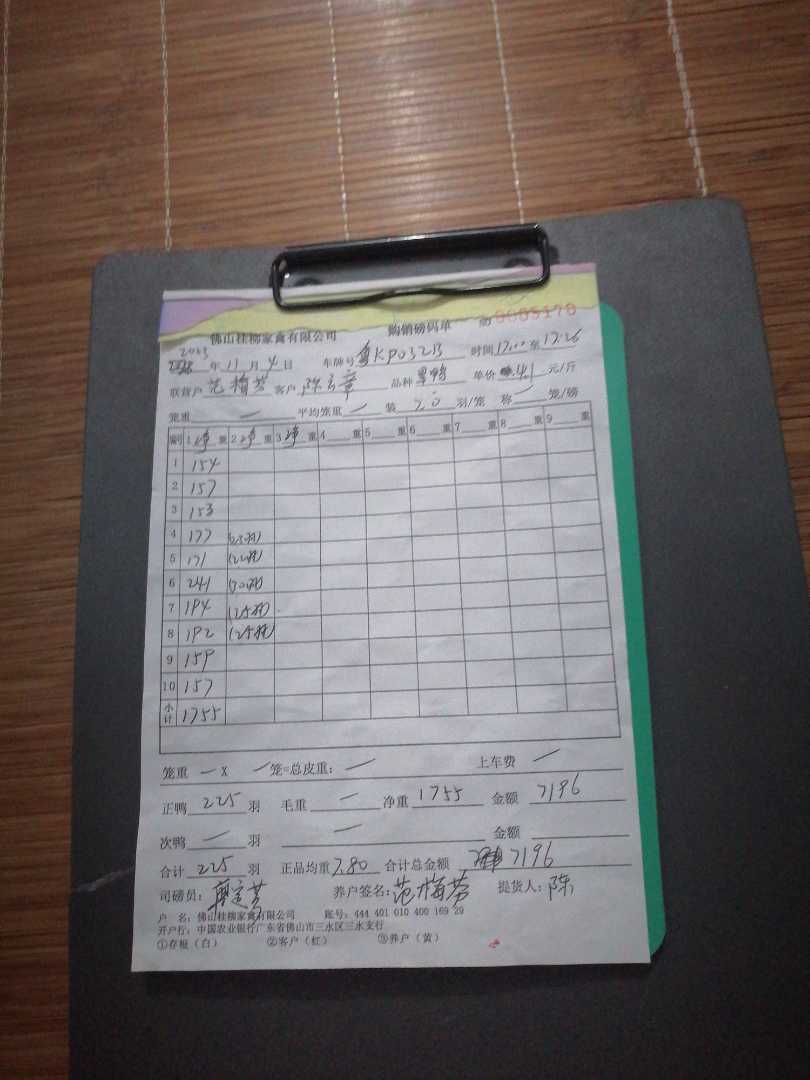 佛山桂柳家禽有限公司 购销磅码单 No 0005170
2023 年 11 月 4 日 车牌号 粤KP032B 时间 17:00 至 17:26
联营户 范梅芬 客户 陈 章 品种 单价 4.1 元/斤
笼重 — 平均笼重 — 装 20 羽/笼 称 — 笼/磅
1 净 重 2 净 重 3 净 重 4 重 5 重 6 重 7 重 8 重 9 重
1 154
2 157
3 153
4 177 (23羽)
5 171 (22羽)
6 241 (30羽)
7 194 (25羽)
8 192 (25羽)
9 159
10 157
小计 1755
笼重 — X — 笼=总皮重: — 上车费 —
正鸭 225 羽 毛重 — 净重 1755 金额 7196
次鸭 — 羽 — 金额
合计 225 羽 正品均重 7.80 合计总金额 7196
司磅员: 养户签名: 范梅芬 提货人: 陈
户 名: 佛山桂柳家禽有限公司 账号: 444 401 010 400 169 29
开户行: 中国农业银行广东省佛山市三水区三水支行
①存根（白） ②客户（红） ③养户（黄）